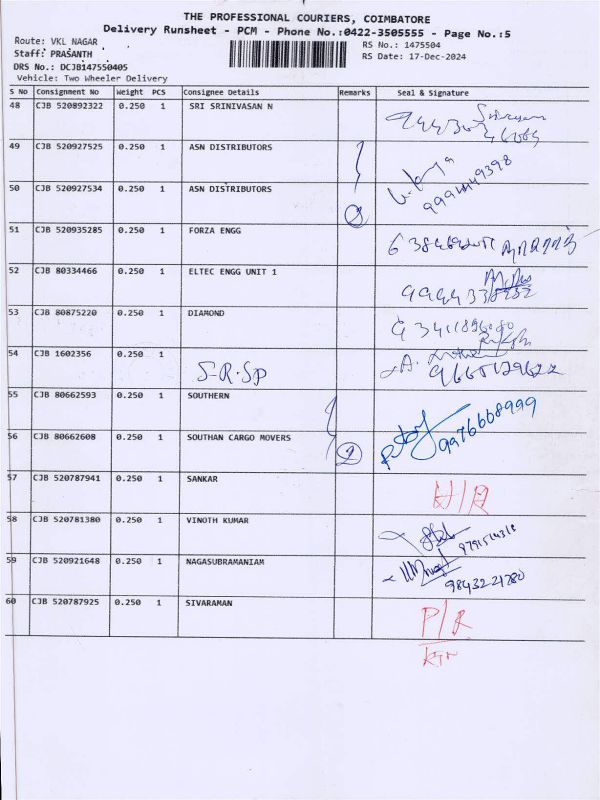 THE PROFESSIONAL COURIERS, COIMBATORE
Delivery Runsheet - PCM - Phone No.:0422-3505555 - Page No.:5
Route: VKL NAGAR
RS No.: 1475504
Staff: PRASANTH
RS Date: 17-Dec-2024
DRS No.: DCJB147550405
Vehicle: Two Wheeler Delivery
S No Consignment No Weight PCS Consignee Details Remarks Seal & Signature
48 CJB 520892322 0.250 1 SRI SRINIVASAN N
49 CJB 520927525 0.250 1 ASN DISTRIBUTORS
50 CJB 520927534 0.250 1 ASN DISTRIBUTORS
51 CJB 520935285 0.250 1 FORZA ENGG
52 CJB 80334466 0.250 1 ELTEC ENGG UNIT 1
53 CJB 80875220 0.250 1 DIAMOND
54 CJB 1602356 0.250 1 S-R-SP
55 CJB 80662593 0.250 1 SOUTHERN
9976668999
56 CJB 80662608 0.250 1 SOUTHAN CARGO MOVERS 2
57 CJB 520787941 0.250 1 SANKAR
58 CJB 520781380 0.250 1 VINOTH KUMAR
59 CJB 520921648 0.250 1 NAGASUBRAMANIAM
9843221780
60 CJB 520787925 0.250 1 SIVARAMAN P/R